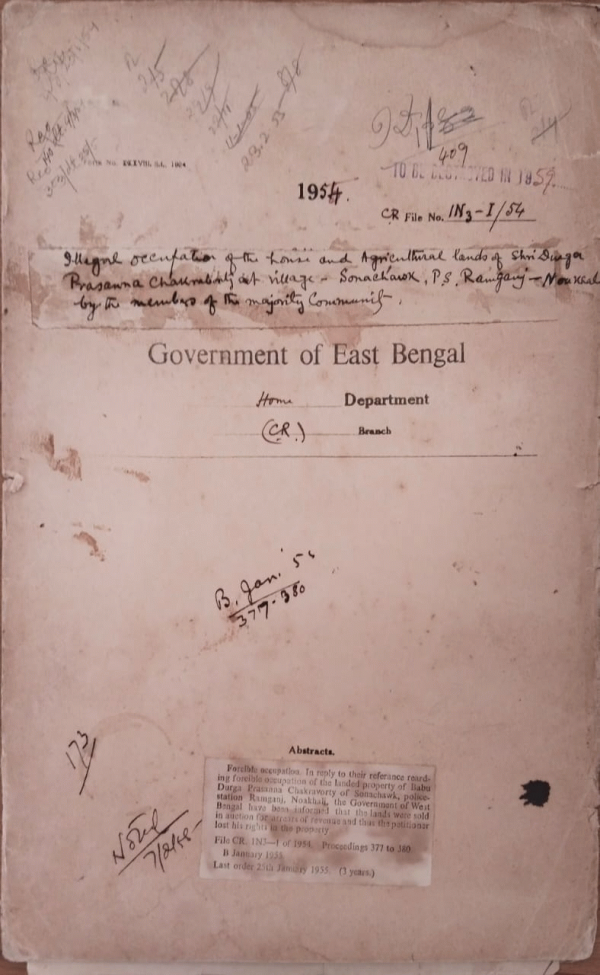 409
TO BE DESTROYED IN 1959.
1954.
CR File No. 1N3-I/54
Illegal occupation of the house and Agricultural lands of Shri Durga
Prasanna Chakrabarty at village - Sonachawk, P.S. Ramganj - Noakhal
by the members of the majority Community.
Government of East Bengal
Home Department
(CR.) Branch
B. Jan. 5
377-380
173
Abstracts.
Forcible occupation. In reply to their reference reard-
ing forcible occupation of the landed property of Babu
Durga Prasanna Chakravorty of Sonachawk, police-
station Ramganj, Noakhali, the Government of West
Bengal have been informed that the lands were sold
in auction for arrears of revenue and thus the petitioner
lost his rights in the property
File CR. 1N3—1 of 1954. Proceedings 377 to 380
B January 1955
Last order 25th January 1955. (3 years.)